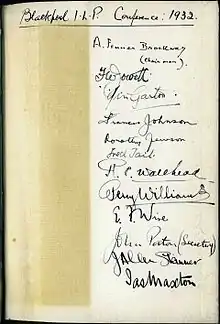 Blackpool I.L.P. Conference: 1932.
A. Fenner Brockway
(Chairman).
Francis Johnson
Dorothy Jewson
Fred Tait
R. C. Wallhead
Percy Williams
E. F. Wise
John Paton (Secretary)
J Allen Skinner
Jas Maxton